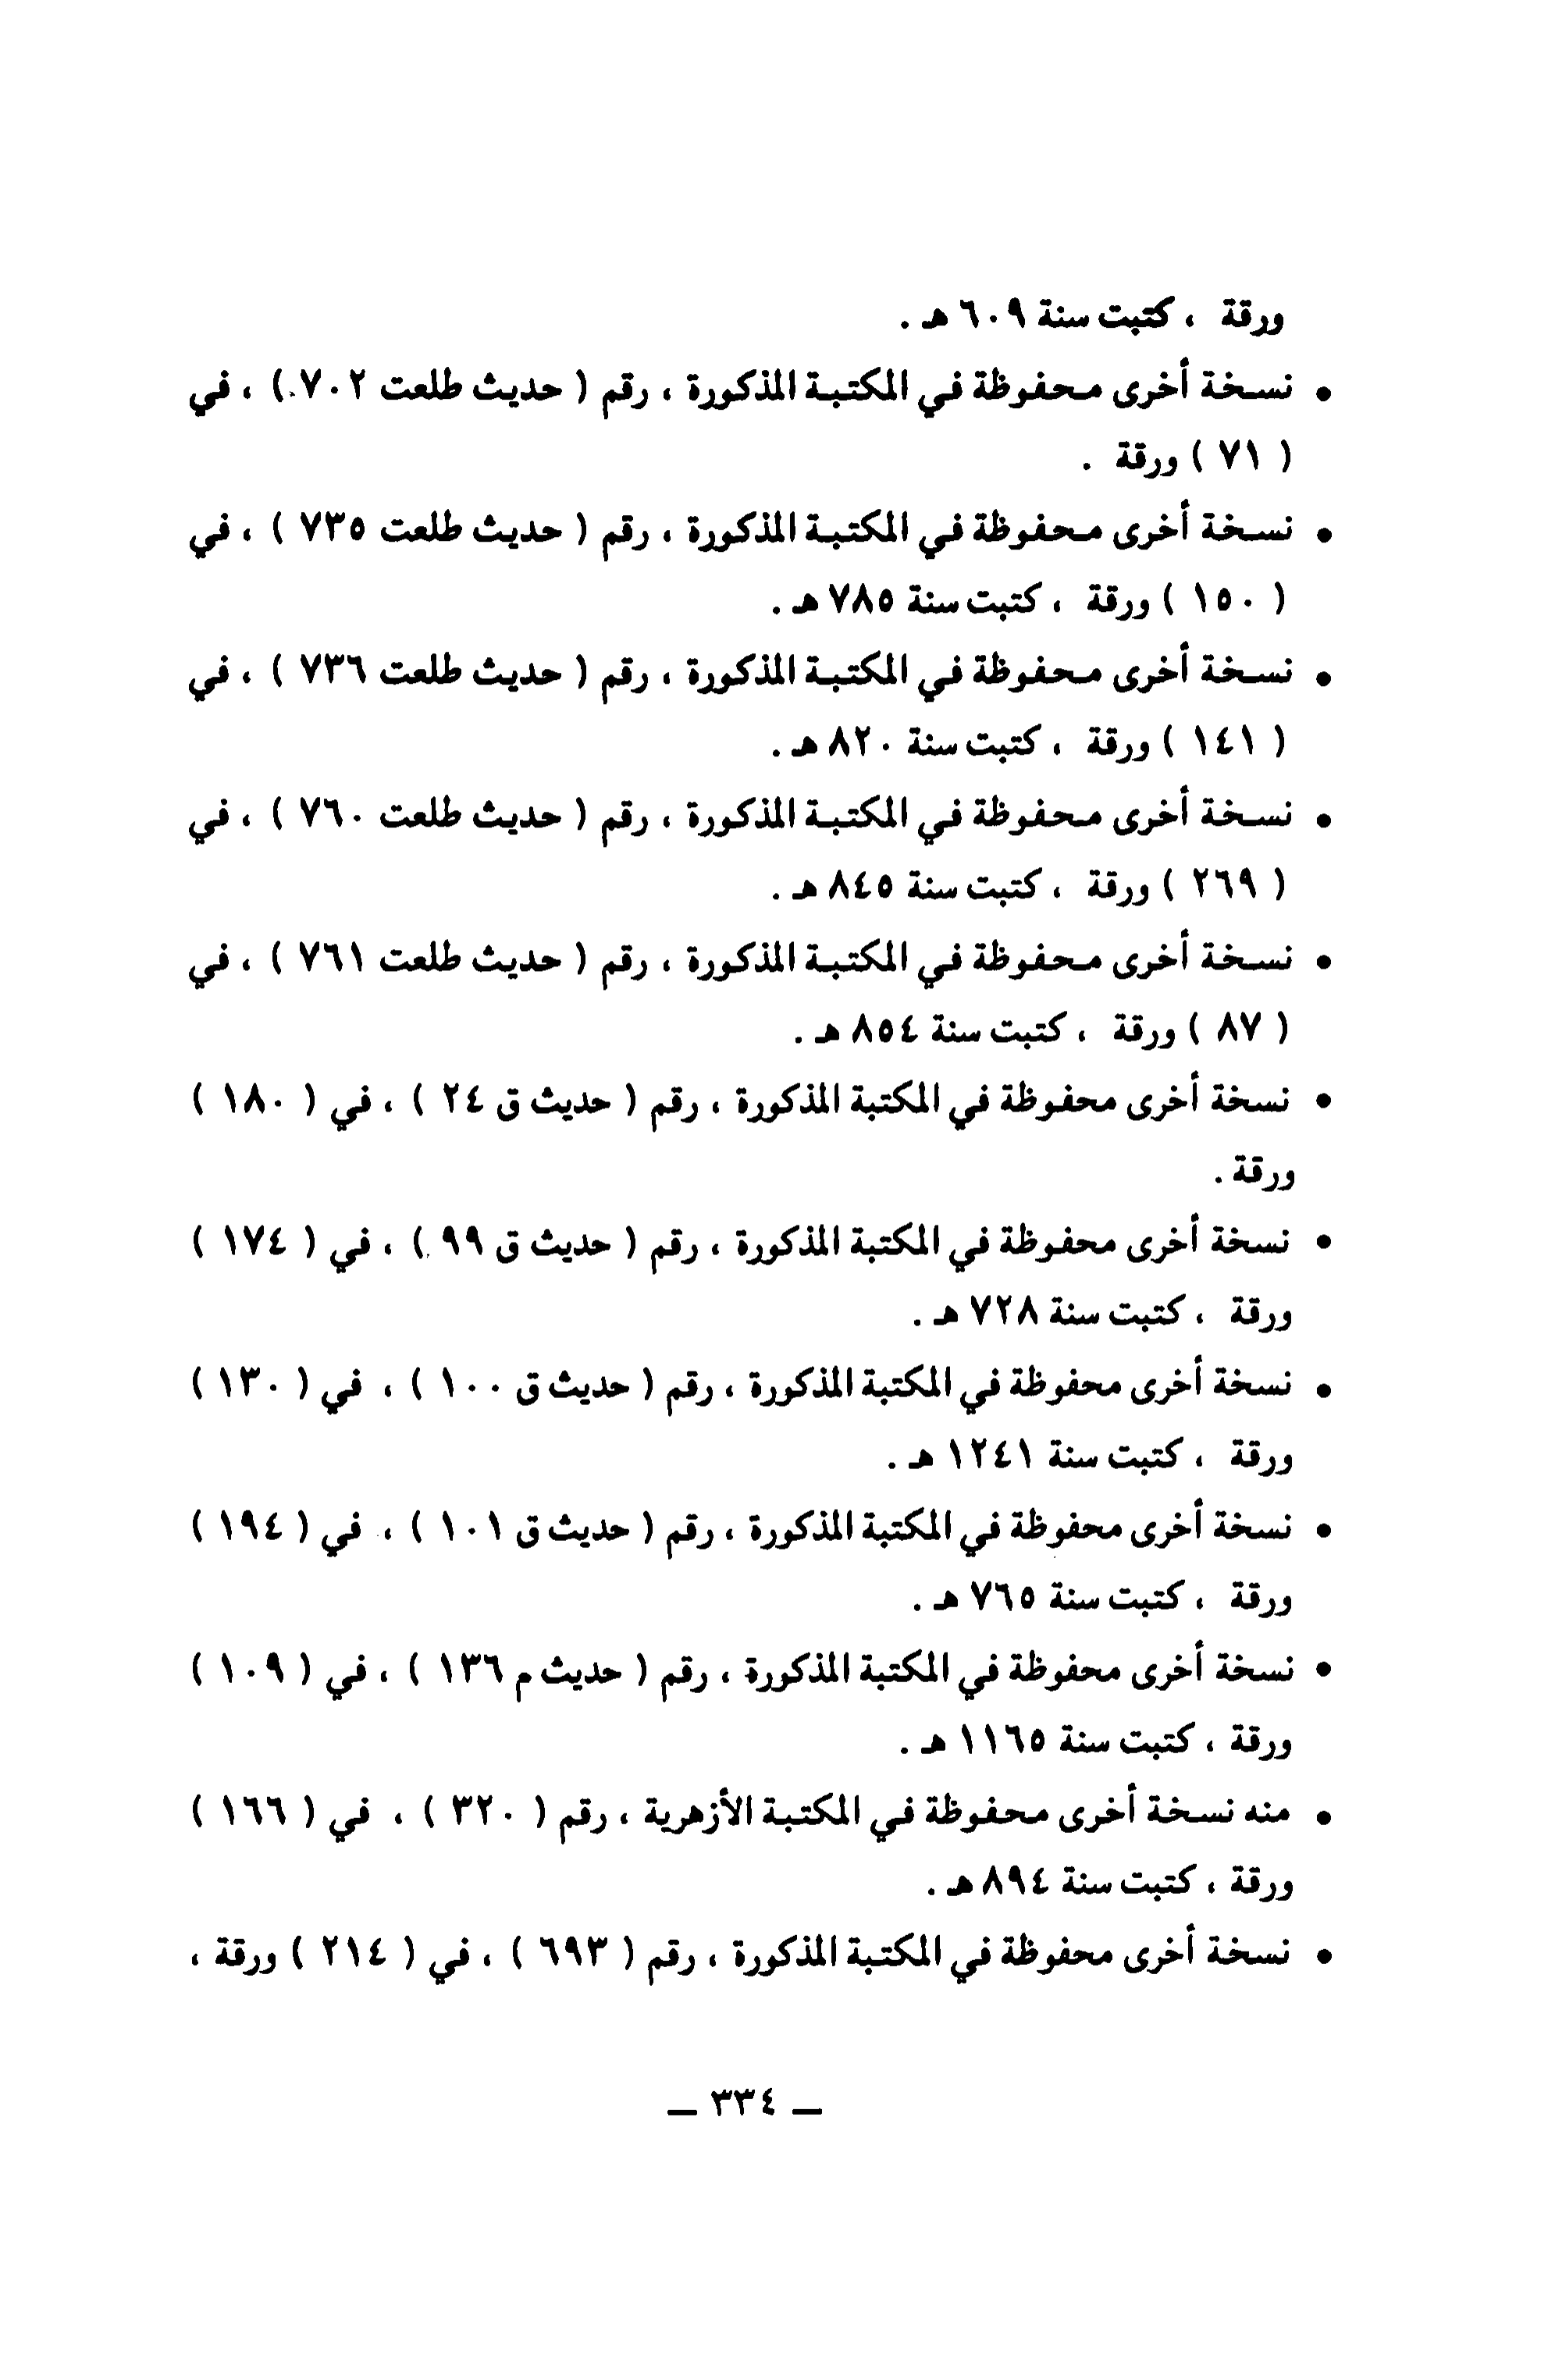 ورقة ، كتبت سنة ٦٠٩ هـ .
• نسخة أخرى محفوظة في المكتبة المذكورة ، رقم ( حديث طلعت ٧٠٢ ) ، في
( ٧١ ) ورقة .
• نسخة أخرى محفوظة في المكتبة المذكورة ، رقم ( حديث طلعت ٧٣٥ ) ، في
( ١٥٠ ) ورقة ، كتبت سنة ٧٨٥ هـ .
• نسخة أخرى محفوظة في المكتبة المذكورة ، رقم ( حديث طلعت ٧٣٦ ) ، في
( ١٤١ ) ورقة ، كتبت سنة ٨٢٠ هـ .
• نسخة أخرى محفوظة في المكتبة المذكورة ، رقم ( حديث طلعت ٧٦٠ ) ، في
( ٢٦٩ ) ورقة ، كتبت سنة ٨٤٥ هـ .
• نسخة أخرى محفوظة في المكتبة المذكورة ، رقم ( حديث طلعت ٧٦١ ) ، في
( ٨٧ ) ورقة ، كتبت سنة ٨٥٤ هـ .
• نسخة أخرى محفوظة في المكتبة المذكورة ، رقم ( حديث ق ٢٤ ) ، في ( ١٨٠ )
ورقة .
• نسخة أخرى محفوظة في المكتبة المذكورة ، رقم ( حديث ق ٩٩ ) ، في ( ١٧٤ )
ورقة ، كتبت سنة ٧٢٨ هـ .
• نسخة أخرى محفوظة في المكتبة المذكورة ، رقم ( حديث ق ١٠٠ ) ، في ( ١٣٠ )
ورقة ، كتبت سنة ١٢٤١ هـ .
• نسخة أخرى محفوظة في المكتبة المذكورة ، رقم ( حديث ق ١٠١ ) ، في ( ١٩٤ )
ورقة ، كتبت سنة ٧٦٥ هـ .
• نسخة أخرى محفوظة في المكتبة المذكورة ، رقم ( حديث م ١٣٦ ) ، في ( ١٠٩ )
ورقة ، كتبت سنة ١١٦٥ هـ .
• منه نسخة أخرى محفوظة في المكتبة الأزهرية ، رقم ( ٣٢٠ ) ، في ( ١٦٦ )
ورقة ، كتبت سنة ٨٩٤ هـ .
• نسخة أخرى محفوظة في المكتبة المذكورة ، رقم ( ٦٩٣ ) ، في ( ٢١٤ ) ورقة ،
ـ ٣٣٤ ـ